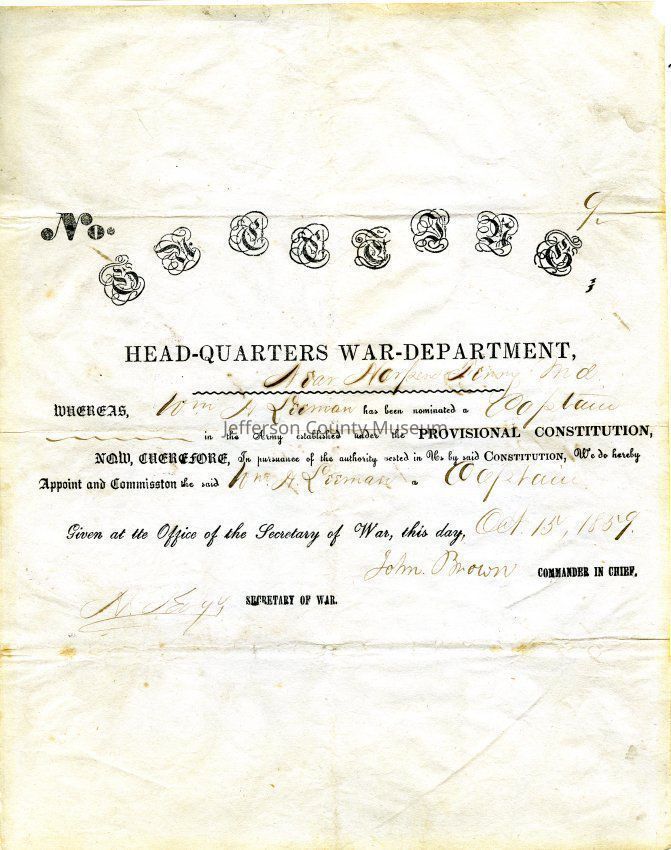 No. 9
HEAD-QUARTERS WAR-DEPARTMENT,
Near Harpers Ferry Md
WHEREAS, Wm H Leeman has been nominated a Captain
in the Army established under the PROVISIONAL CONSTITUTION,
NOW, THEREFORE, In pursuance of the authority vested in Us by said CONSTITUTION, We do hereby
Appoint and Commisston the said Wm H. Leeman a Captain
Given at tte Office of the Secretary of War, this day, Oct. 15, 1859.
John Brown COMMANDER IN CHIEF,
SECRETARY OF WAR.
Jefferson County Museum